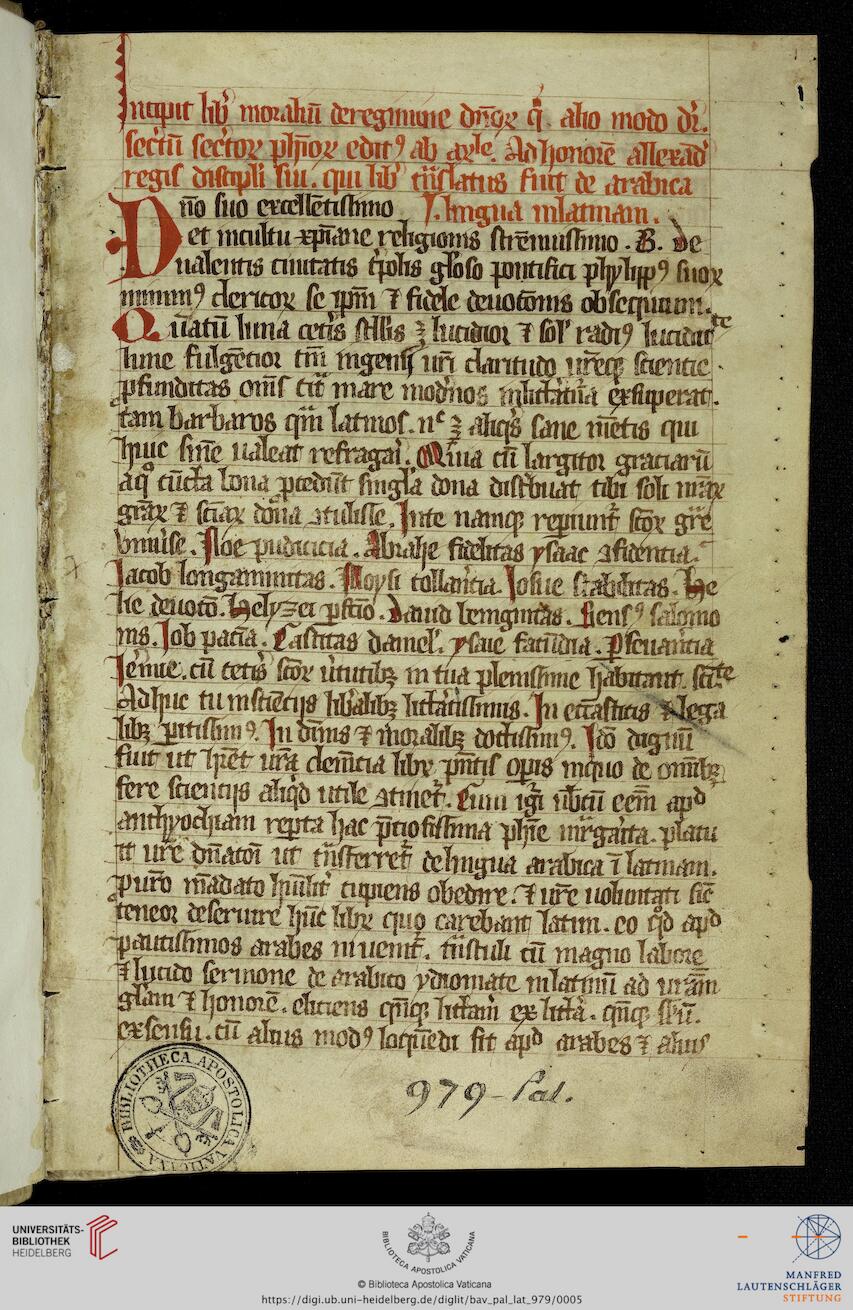 Incipit lib' moraliū de regimine dn̄or̄ q̄ alio modo dr̄.
secretū secretor̄ ph̄or̄ edit' ab arle. Ad honorē allexād'
regis discipli sui. qui lib' trāslatus fuit de arabica
Dn̄o suo excellētissimo lingua in latinam.
et in cultu xp̄iane religionis strēnuissimo. B. de
ualentis ciuitatis t'polis gl'oso pontifici phylipp' suor̄
minim' clericor̄ se ip̄m ⁊ fidele deuotōnis obsequium.
Quātū luna cet'is stellis ē lucidior ⁊ sol' radi' lucidit'te
lune fulgētior tm̄ ingenij ur̄i claritudo ur̄eq; scientie
ꝓfunditas om̄s cit' mare mod'nos in litt'at'a exsuperat.
tam barbaros qm̄ latinos. n^c ē aliq's sane mētis qui
huic sn̄īe ualeat refragari. Quia cū largitor graciarū
a q° cūcta bona ꝓcedūt singl'a dona dist'buat tibi soli
gr̄ar̄ ⁊ sciār̄ dona ꝯtulisse. In te namq; reperiunt' scōr̄ gr̄e
vniu'se. Noe pudicicia. Abrahe fidelitas ysaac ꝯfidentia.
Jacob longanimitas. Moysi tollerātia. Josue stabilitas. He
lie deuotō. Helyzei ꝑfctio. Dauid benignitas. Sens' salomo
nis. Job paciā. Castitas daniel'. ysaie facūdia. Perseuerātia
Jeremie. cū ceteris scōr̄ v'tutib; in tua plenissime habitant scīte
Adhuc tu in sciētijs lib'alib; litt'atissimus. In eccl'iasticis ⁊ lega
lib; peritissim'. In diuinis ⁊ moralib; doctissim'. Idō dignū
fuit ut hr̄et ur̄a clemētia libr̄ p̄ntis opis in quo de omnib;
fere scientijs aliq'd utile ꝯtinet'. Cum ig' ubcū eēm apd'
anthyochiam reꝑta hac p̄ciosissima ph̄ie m'garita. placu
it ur̄e dn̄atoī ut trāsferret' de lingua arabica ī latinam.
Porro mādato hūilit' cupiens obedire. ⁊ ur̄e uoluntati sic'
teneor deseruire hūc libr̄ quo carebant latini. eo q'd apd'
paucissimos arabes inuenit'. trāstuli cū magno labore
⁊ lucido sermone de arabico ydiomate in latinū ad ur̄am
gl'am ⁊ honorē. eliciens q̄nq; litt'am ex litt'a. q̄nq; sēsū.
ex sensu. cū alius mod' loquēdi sit apd' arabes ⁊ alius
BIBLIOTHECA APOSTOLICA VATICANA
979-Pal.
UNIVERSITÄTS-
BIBLIOTHEK
HEIDELBERG
BIBLIOTECA APOSTOLICA VATICANA
© Biblioteca Apostolica Vaticana
https://digi.ub.uni-heidelberg.de/diglit/bav_pal_lat_979/0005
MANFRED
LAUTENSCHLÄGER
STIFTUNG